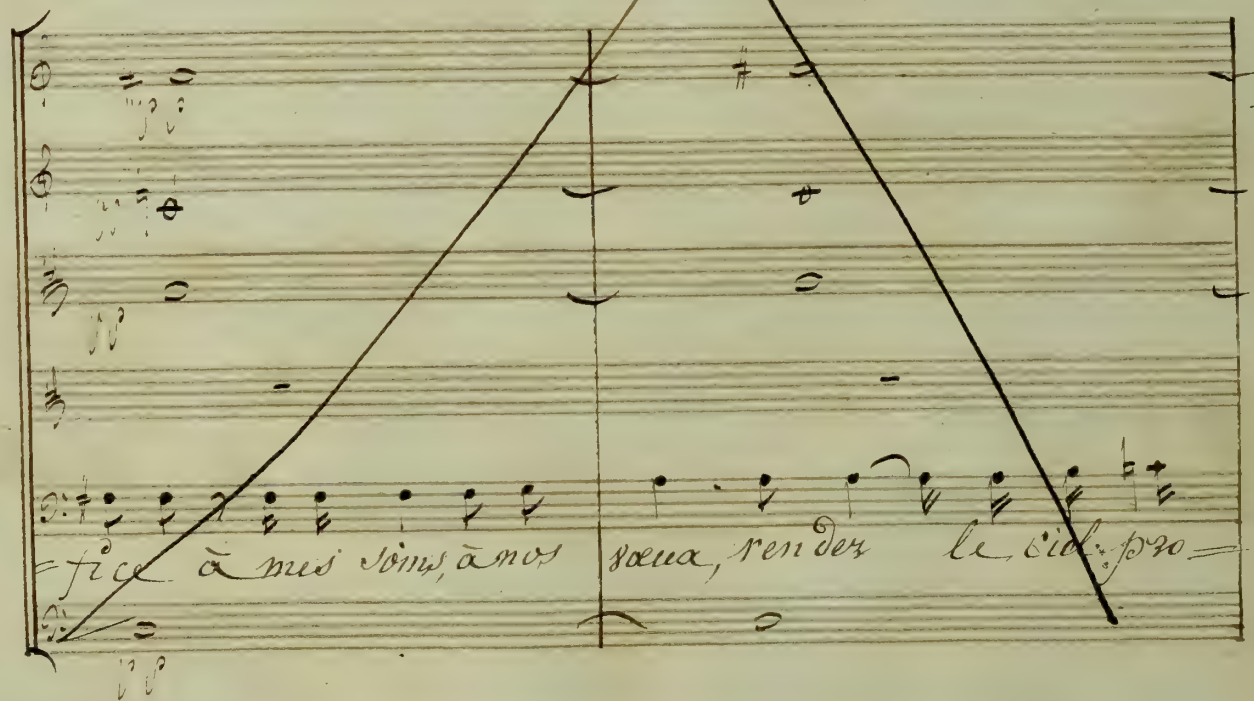 pp
pp
pp
=fice à mes soins, à nos vœux, rendez le ciel pro=
pp